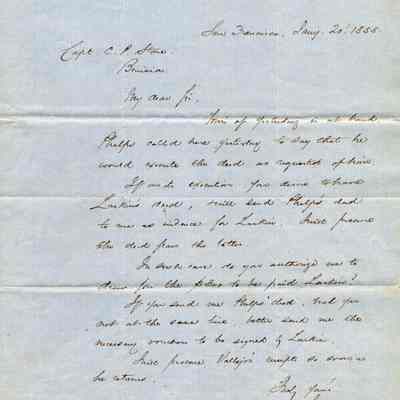 San Francisco, Jany. 20, 1855
Capt C. P. Stone
Benicia
My dear Sir,
Yours of yesterday is at hand
Phelps called here yesterday to say that he
would execute the deed as requested of him
If such execution you desire to have
Larkin's deed, send Phelps' deed
to me as evidence for Larkin. I will procure
the deed from the latter
In such case do you authorize me to
for the to be paid Larkin?
If you send me Phelps' deed, but you
not at the same time, better send me the
necessary vouchers to be signed by Larkin.
I will procure Vallejo's receipts so soon as
he returns.
Truly Yours